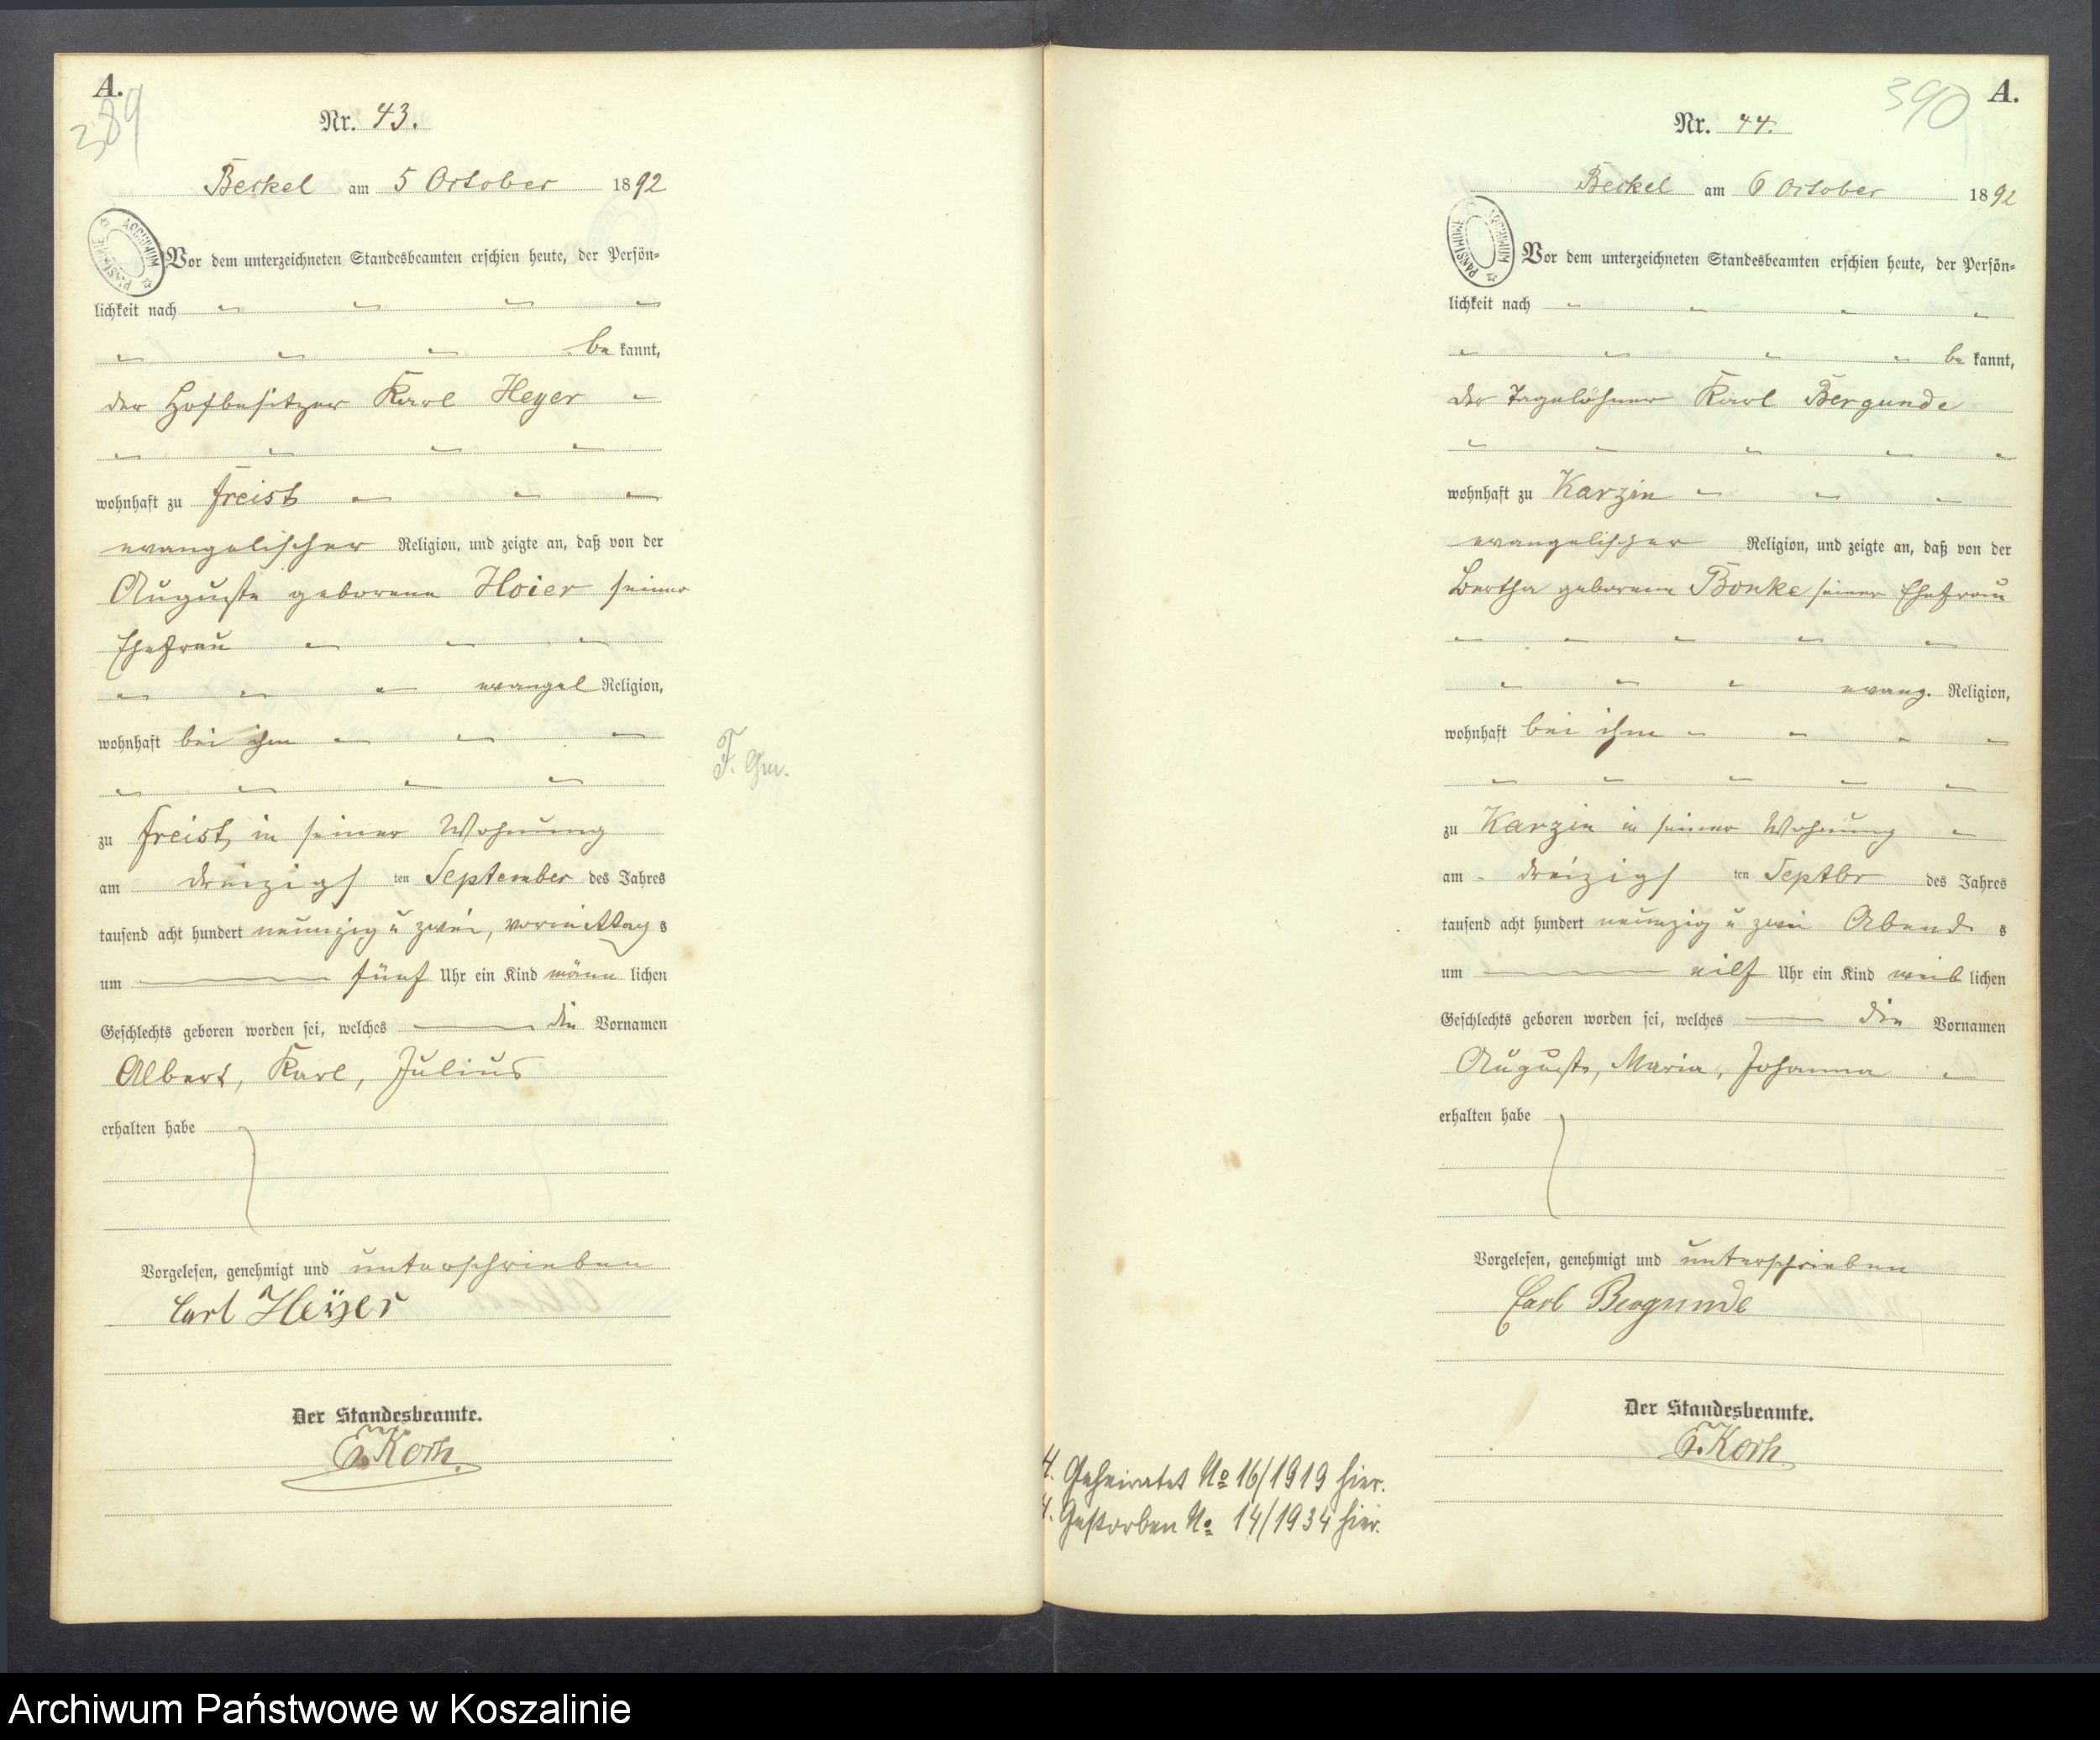 A.
389
Nr. 43.
Beckel am 5 October 1892
Vor dem unterzeichneten Standesbeamten erschien heute, der Persön-
lichkeit nach
be kannt,
der Hofbesitzer Karl Heyer
wohnhaft zu Freist
evangelischer Religion, und zeigte an, daß von der
Auguste geborene Hoier seiner
Ehefrau
evangel Religion,
wohnhaft bei ihm
zu Freist, in seiner Wohnung
am dreizigs ten September des Jahres
tausend acht hundert neunzig u zwei, vormittag s
um fünf Uhr ein Kind männ lichen
Geschlechts geboren worden sei, welches die Vornamen
Albert, Karl, Julius
erhalten habe
Vorgelesen, genehmigt und unterschrieben
Carl Heÿer
Der Standesbeamte.
Koch.
F.
A.
390
Nr. 44.
Beckel am 6 October 1892
Vor dem unterzeichneten Standesbeamten erschien heute, der Persön-
lichkeit nach
be kannt,
der Tagelöhner Karl Bergunde
wohnhaft zu Karzin
evangelischer Religion, und zeigte an, daß von der
Bertha geborene Bonke seiner Ehefrau
evang. Religion,
wohnhaft bei ihm
zu Karzin in seiner Wohnung
am dreizigs ten Septbr des Jahres
tausend acht hundert neunzig u zwei Abend s
um eilf Uhr ein Kind weib lichen
Geschlechts geboren worden sei, welches die Vornamen
Auguste, Maria, Johanna
erhalten habe
Vorgelesen, genehmigt und unterschrieben
Carl Bergunde
Der Standesbeamte.
Koch
Geheiratet No 16/1919 hier.
Gestorben No 14/1934 hier.
Archiwum Państwowe w Koszalinie